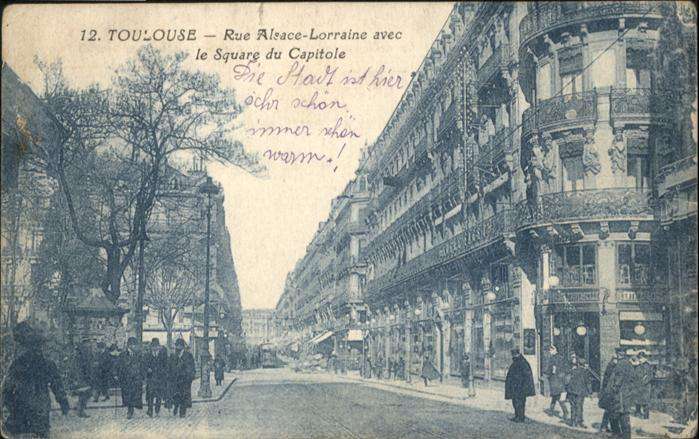 12. TOULOUSE – Rue Alsace-Lorraine avec
le Square du Capitole
Die Stadt ist hier
sehr schön
immer schön
warm!